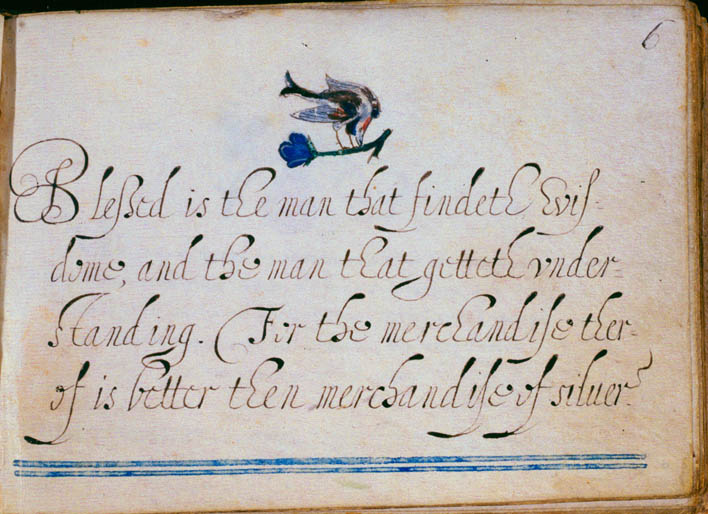 6
Blessed is the man that findeth wis-
dome, and the man that getteth vnder-
standing. For the merchandise ther-
of is better then merchandise of siluer.